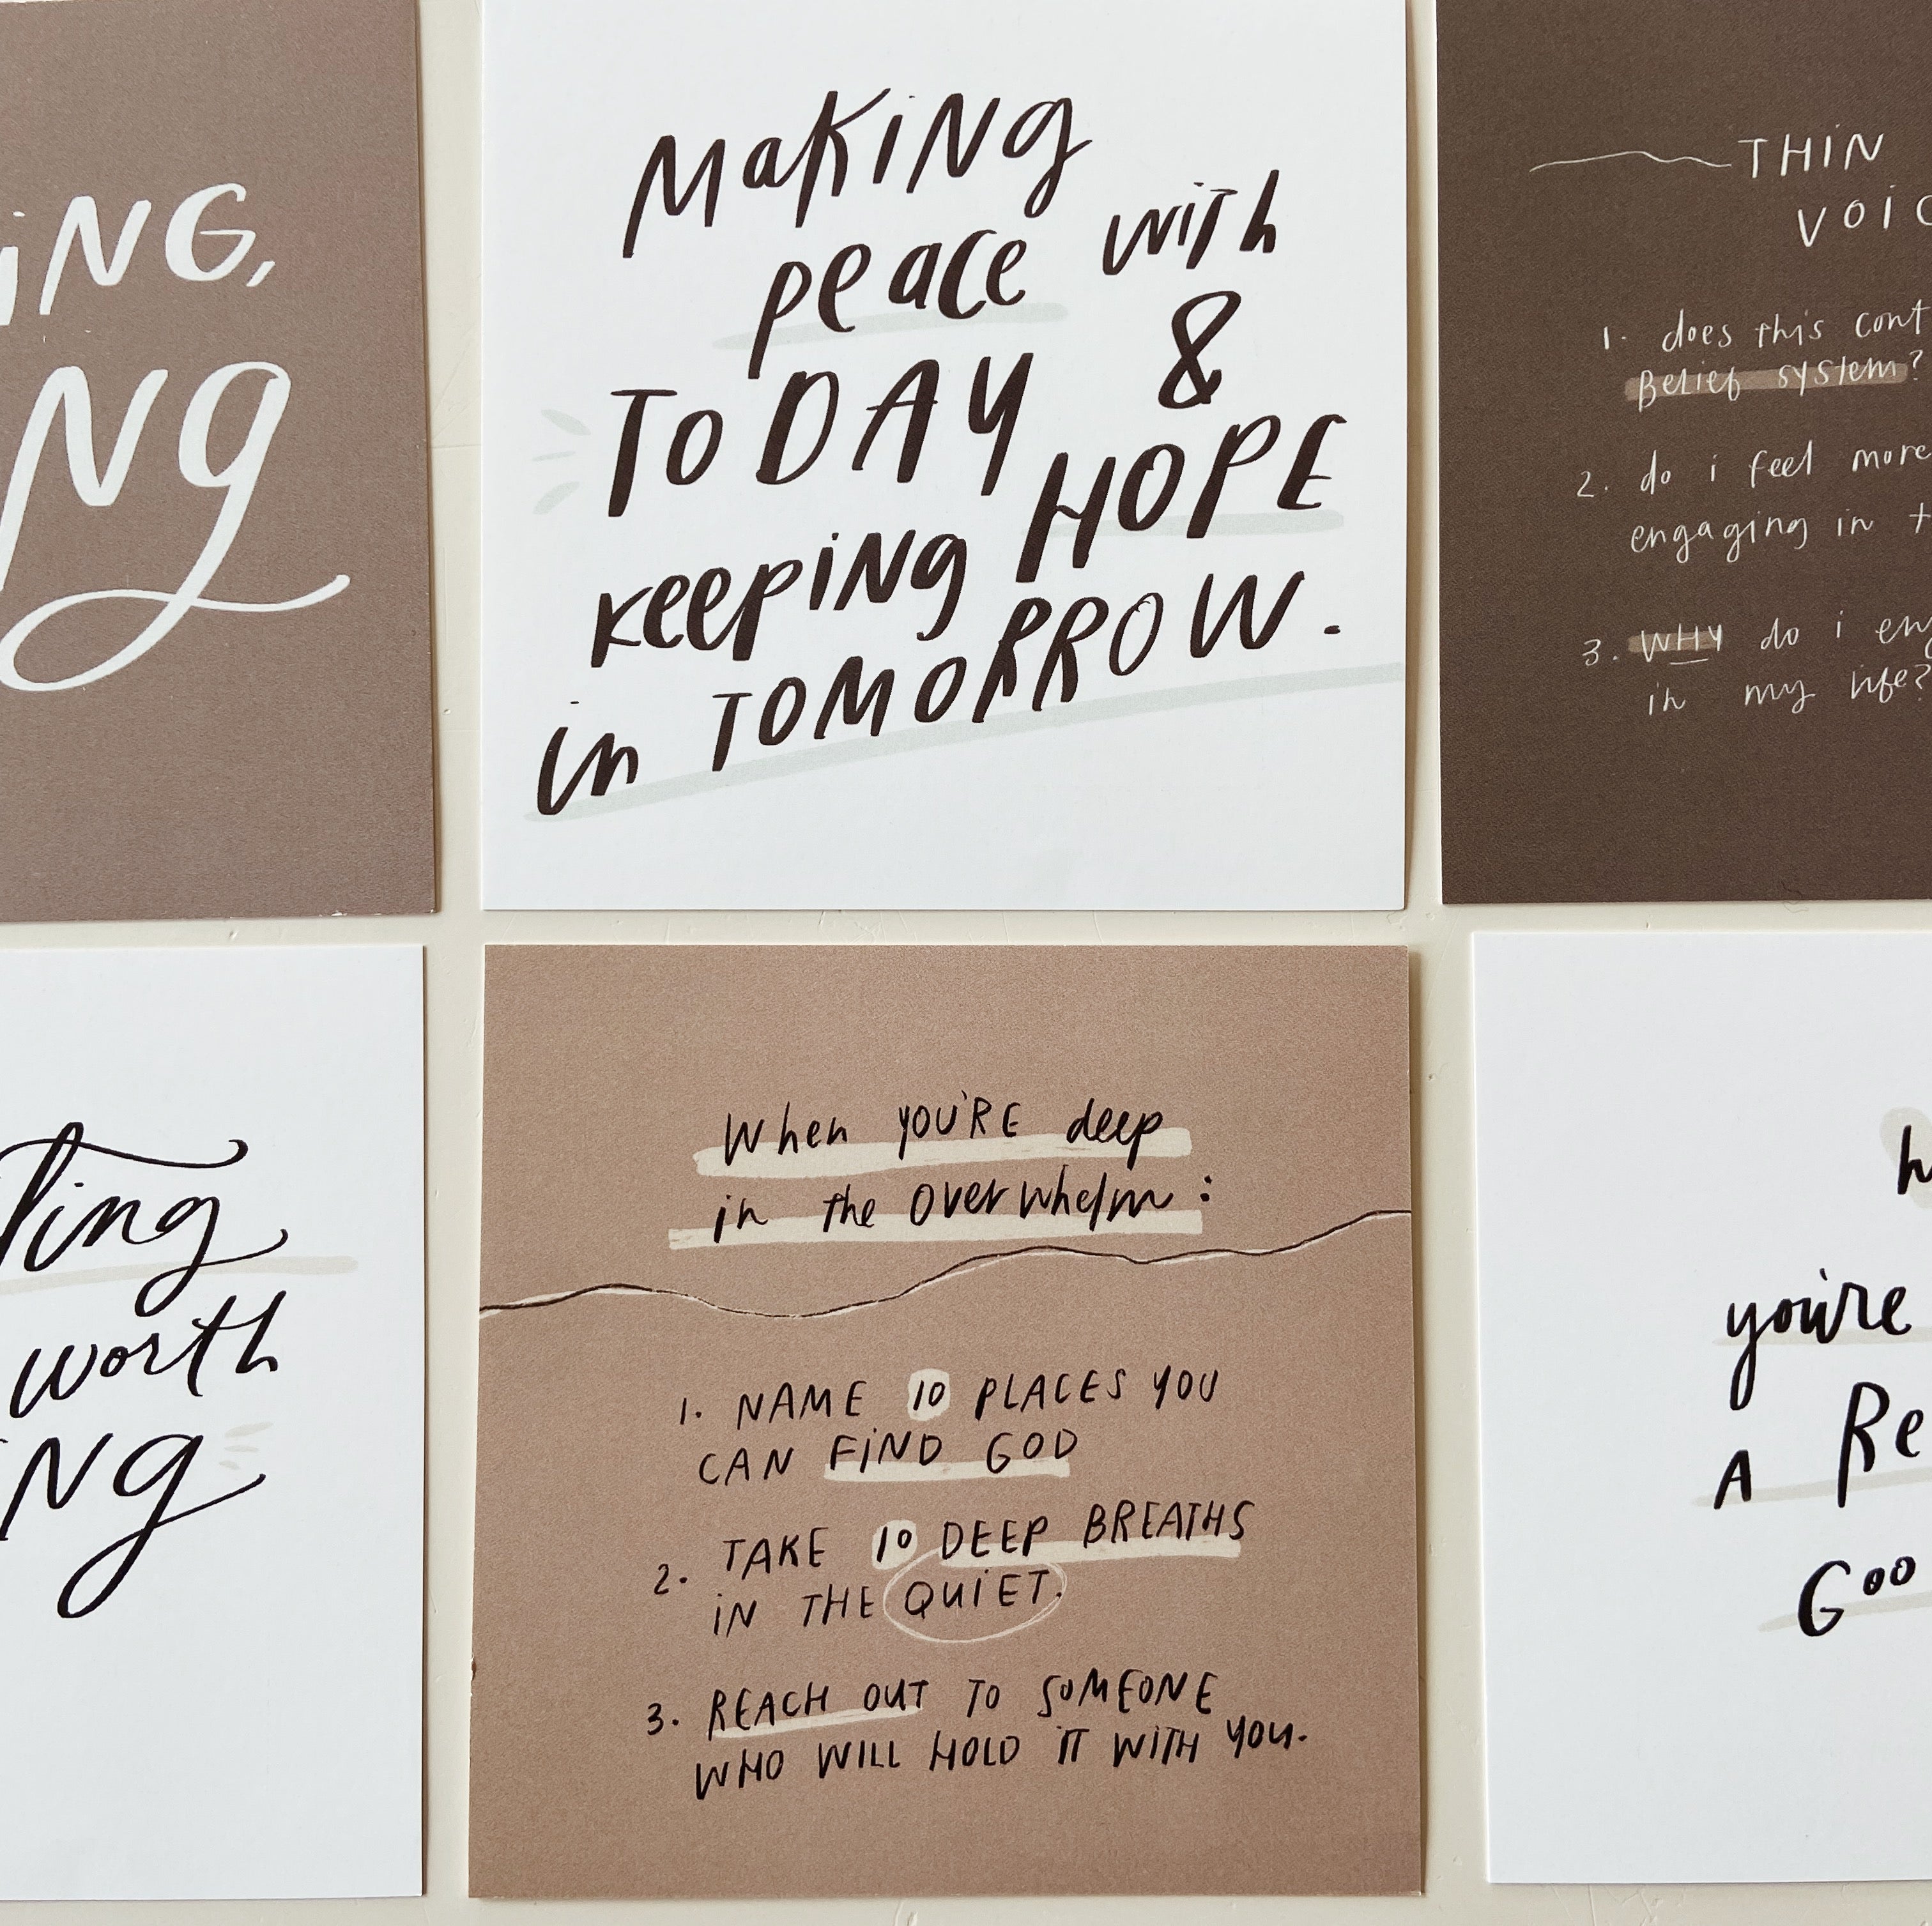 Making
peace with
TODAY &
keeping HOPE
in TOMORROW.
does this
1.
Belief system?
2. do i feel more
engaging in
3. WHY do i
in my life?
worth
When YOU'RE deep
in the overwhelm:
1. NAME 10 PLACES YOU
CAN FIND GOD
2. TAKE 10 DEEP BREATHS
IN THE QUIET.
3. REACH OUT TO SOMEONE
WHO WILL HOLD IT WITH YOU.
you're
A